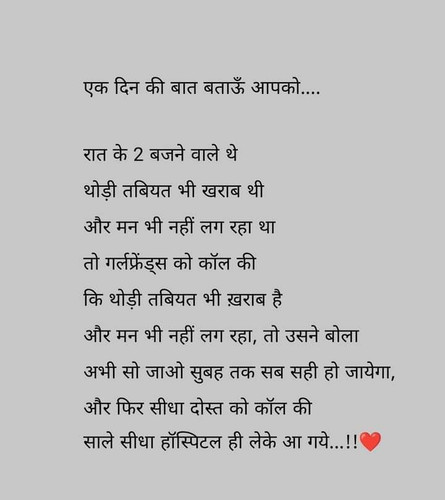 एक दिन की बात बताऊँ आपको....
रात के 2 बजने वाले थे
थोड़ी तबियत भी खराब थी
और मन भी नहीं लग रहा था
तो गर्लफ्रेंड्स को कॉल की
कि थोड़ी तबियत भी ख़राब है
और मन भी नहीं लग रहा, तो उसने बोला
अभी सो जाओ सुबह तक सब सही हो जायेगा,
और फिर सीधा दोस्त को कॉल की
साले सीधा हॉस्पिटल ही लेके आ गये...!!❤️